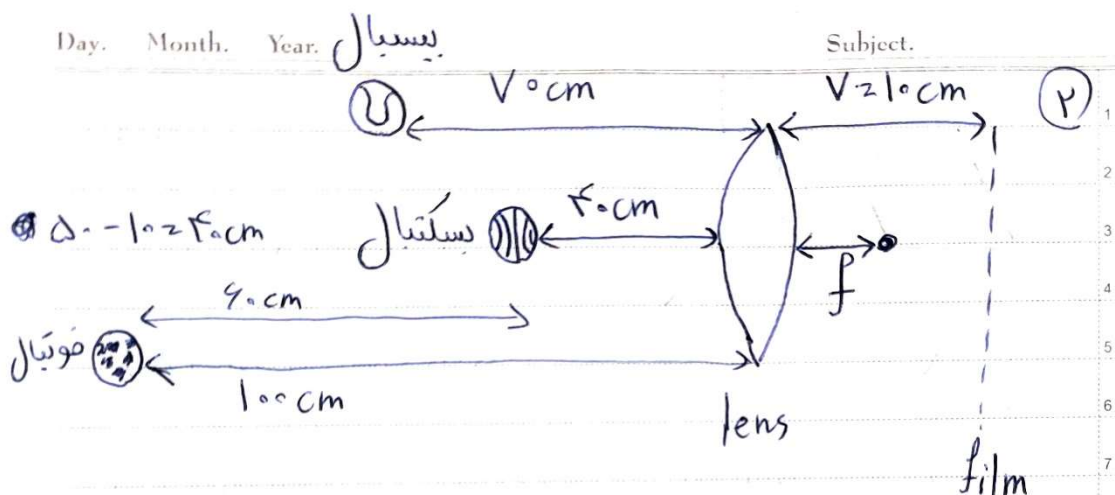 Day. Month. Year. Subject.
بیسبال
۷۰cm
V=۱۰cm
۲
۵۰-۱۰=۴۰cm
بسکتبال
۴۰cm
f
۶۰cm
فوتبال
۱۰۰cm
lens
film
1
2
3
4
5
6
7